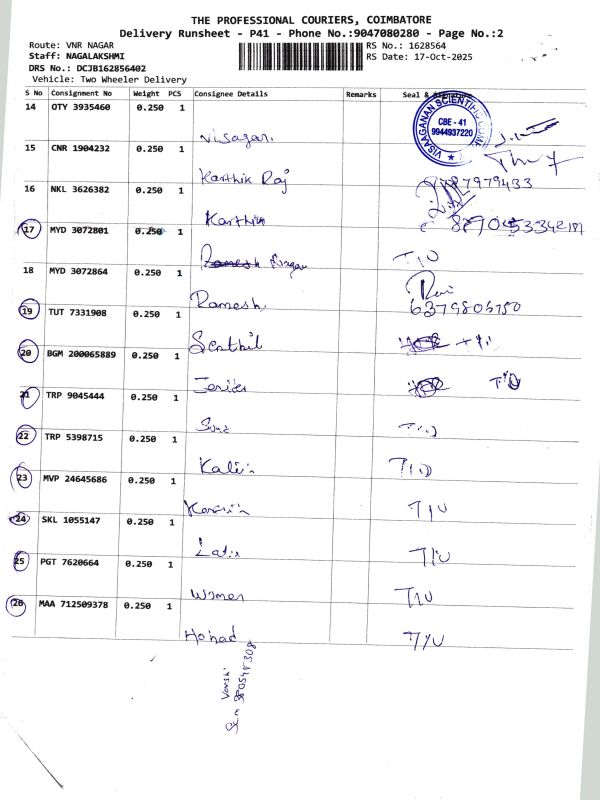 THE PROFESSIONAL COURIERS, COIMBATORE
Delivery Runsheet - P41 - Phone No.:9047080280 - Page No.:2
Route: VNR NAGAR
RS No.: 1628564
Staff: NAGALAKSHMI
RS Date: 17-Oct-2025
DRS No.: DCJB162856402
Vehicle: Two Wheeler Delivery
S No Consignment No Weight PCS Consignee Details Remarks Seal & Signature
14 OTY 3935460 0.250 1 Visagan.
VISAAGANAN SCIENTIFIC
CBE - 41
9944937220
15 CNR 1904232 0.250 1 Karthik Raj
16 NKL 3626382 0.250 1 Karthik
17 MYD 3072801 0.250 1 Ramesh Nagar T/U
18 MYD 3072864 0.250 1 Ramesh Ravi
6379805750
19 TUT 7331908 0.250 1 Senthil
20 BGM 200065889 0.250 1 T/U
21 TRP 9045444 0.250 1 T/U
22 TRP 5398715 0.250 1 T/U
23 MVP 24645686 0.250 1 T/U
24 SKL 1055147 0.250 1 T/U
25 PGT 7620664 0.250 1 Women T/U
26 MAA 712509378 0.250 1 T/U